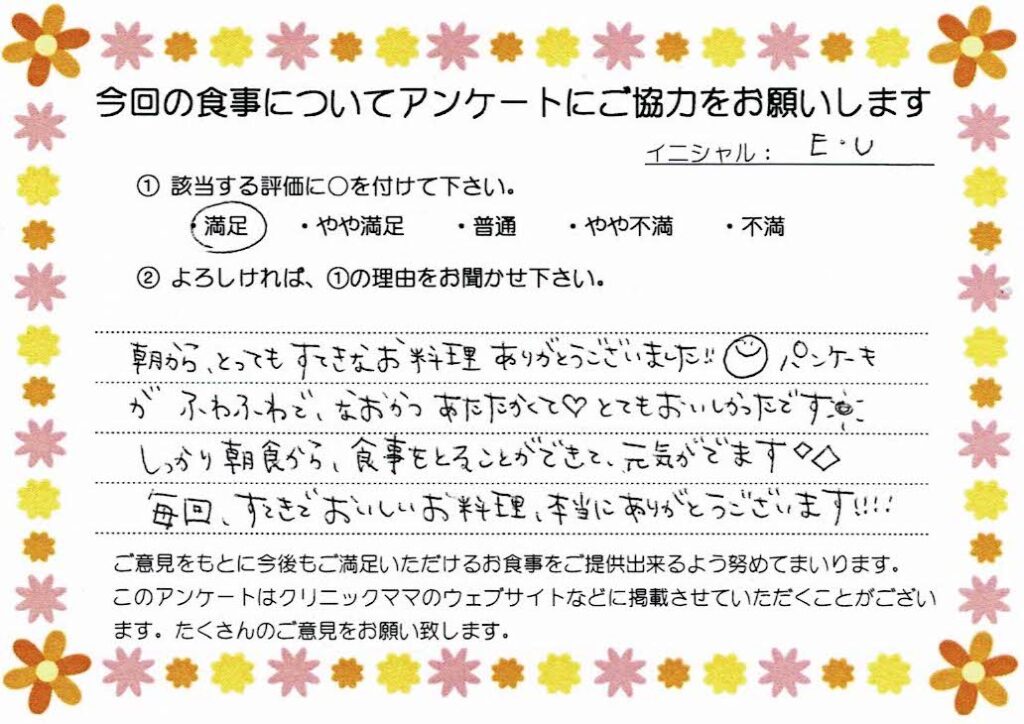 今回の食事についてアンケートにご協力をお願いします
イニシャル： E・U
① 該当する評価に○を付けて下さい。
・満足 ・やや満足 ・普通 ・やや不満 ・不満
② よろしければ、①の理由をお聞かせ下さい。
朝から、とっても すてきなお料理 ありがとうございました!! パンケーキ
が ふわふわで、なおかつ あたたかくて♡ とてもおいしかったです
しっかり朝食から、食事をとることができて、元気がでます◇◇
毎回、すてきで おいしいお料理、本当にありがとうございます!!!!
ご意見をもとに今後もご満足いただけるお食事をご提供出来るよう努めてまいります。
このアンケートはクリニックママのウェブサイトなどに掲載させていただくことがござい
ます。たくさんのご意見をお願い致します。